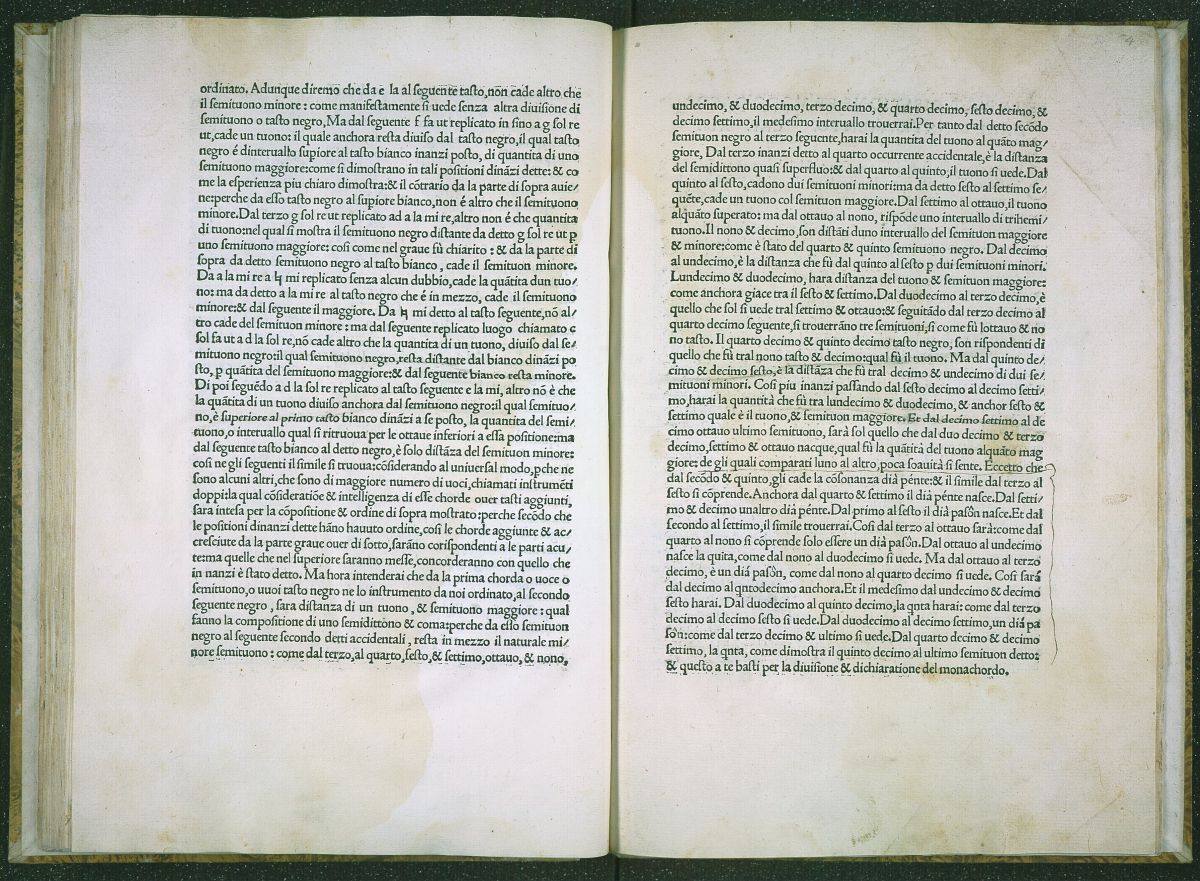 ordinato. Adunque diremo che da e la al seguente tasto, non cade altro che
il semituono minore: come manifestamente si uede senza altra diuisione di
semituono o tasto negro, Ma dal seguente f fa ut replicato in sino a g sol re
ut, cade un tuono: il quale anchora resta diuiso dal tasto negro, il qual tasto
negro é dinteruallo supiore al tasto bianco inanzi posto, di quantita di uno
semituono maggiore: come si dimostrano in tali positioni dināzi dette: & co
me la esperienza piu chiaro dimostra: & il cōtrario da la parte di sopra auie/
ne: perche da esso tasto negro al supiore bianco, non é altro che il semituono
minore. Dal terzo g sol re ut replicato ad a la mi re, altro non é che quantita
di tuono: nel qual si mostra il semituono negro distante da detto g sol re ut p
uno semituono maggiore: cosi come nel graue fú chiarito: & da la parte di
sopra da detto semituono negro al tasto bianco, cade il semituon minore.
Da a la mi re a ♮ mi replicato senza alcun dubbio, cade la quātita dun tuo/
no: ma da detto a la mi re al tasto negro che é in mezzo, cade il semituono
minore: & dal seguente il maggiore. Da ♮ mi detto al tasto seguente, nō al/
tro cade del semituon minore: ma dal seguente replicato luogo chiamato c
sol fa ut a d la sol re, nō cade altro che la quantita di un tuono, diuiso dal se/
mituono negro: il qual semituono negro, resta distante dal bianco dināzi po
sto, p quātita del semituono maggiore: & dal seguente bianco resta minore.
Di poi seguēdo a d la sol re replicato al tasto seguente e la mi, altro nō è che
la quātita di un tuono diuiso anchora dal semituono negro: il qual semituo/
no, è superiore al primo tasto bianco dināzi a se posto, la quantita del semi/
tuono, o interuallo qual si ritruoua per le ottaue inferiori a essa positione: ma
dal seguente tasto bianco al detto negro, è solo distāza del semituon minore:
cosi ne gli seguenti il simile si truoua: cōsiderando al uniuersal modo, pche ne
sono alcuni altri, che sono di maggiore numero di uoci, chiamati instrumēti
doppi: la qual cōsideratiōe & intelligenza di esse chorde ouer tasti aggiunti,
sara intesa per la cōpositione & ordine di sopra mostrato: perche secōdo che
le positioni dinanzi dette hāno hauuto ordine, cosi le chorde aggiunte & ac/
cresciute da la parte graue ouer di sotto, sarāno corispondenti a le parti acu/
te: ma quelle che nel superiore saranno messe, concorderanno con quello che
in nanzi è stato detto. Ma hora intenderai che da la prima chorda o uoce o
semituono, o uuoi tasto negro ne lo instrumento da noi ordinato, al secondo
seguente negro, sara distanza di un tuono, & semituono maggiore: qual
fanno la compositione di uno semidittono & coma: perche da esso semituon
negro al seguente secondo detti accidentali, resta in mezzo il naturale mi/
nore semituono: come dal terzo, al quarto, sesto, & settimo, ottauo, & nono,
4
undecimo, & duodecimo, terzo decimo, & quarto decimo, sesto decimo, &
decimo settimo, il medesimo interuallo trouerrai. Per tanto dal detto secōdo
semituon negro al terzo seguente, harai la quantita del tuono al quāto mag/
giore, Dal terzo inanzi detto al quarto occurrente accidentale, è la distanza
del semidittono quasi superfluo: & dal quarto al quinto, il tuono si uede. Dal
quinto al sesto, cadono dui semituoni minori: ma da detto sesto al settimo se/
quēte, cade un tuono col semituon maggiore. Dal settimo al ottauo, il tuono
alquāto superato: ma dal ottauo al nono, rispōde uno interuallo di trihemi/
tuono. Il nono & decimo, son distāti duno interuallo del semituon maggiore
& minore: come è stato del quarto & quinto semituono negro. Dal decimo
al undecimo, è la distanza che fú dal quinto al sesto p dui semituoni minori.
Lundecimo & duodecimo, hara distanza del tuono & semituon maggiore:
come anchora giace tra il sesto & settimo. Dal duodecimo al terzo decimo, è
quello che sol si uede tral settimo & ottauo: & seguitādo dal terzo decimo al
quarto decimo seguente, si trouerrāno tre semituoni, si come fú lottauo & no
no tasto. Il quarto decimo & quinto decimo tasto negro, son rispondenti di
quello che fú tral nono tasto & decimo: qual fú il tuono. Ma dal quinto de/
cimo & decimo sesto, è la distāza che fú tral decimo & undecimo di dui se/
mituoni minori. Cosi piu inanzi passando dal sesto decimo al decimo setti/
mo, harai la quantità che fú tra lundecimo & duodecimo, & anchor sesto &
settimo quale è il tuono, & semituon maggiore. Et dal decimo settimo al de
cimo ottauo ultimo semituono, sarà sol quello che dal duo decimo & terzo
decimo, settimo & ottauo nacque, qual fú la quātità del tuono alquāto mag
giore: de gli quali comparati luno al altro, poca soauità si sente. Eccetto che
dal secōdo & quinto, gli cade la cōsonanza dià pénte: & il simile dal terzo al
sesto si cōprende. Anchora dal quarto & settimo il dià pénte nasce. Dal setti/
mo & decimo unaltro dià pénte. Dal primo al sesto il dià pasōn nasce. Et dal
secondo al settimo, il simile trouerrai. Cosi dal terzo al ottauo sarà: come dal
quarto al nono si cōprende solo essere un dià pasōn. Dal ottauo al undecimo
nasce la quīta, come dal nono al duodecimo si uede. Ma dal ottauo al terzo
decimo, è un diá pasōn, come dal nono al quarto decimo si uede. Cosi sará
dal decimo al qntodecimo anchora. Et il medesimo dal undecimo & decimo
sesto harai. Dal duodecimo al quinto decimo, la qnta harai: come dal terzo
decimo al decimo sesto si uede. Dal duodecimo al decimo settimo, un diá pa
sōn: come dal terzo decimo & ultimo si uede. Dal quarto decimo & decimo
settimo, la qnta, come dimostra il quinto decimo al ultimo semituon detto:
& questo a te basti per la diuisione & dichiaratione del monachordo.